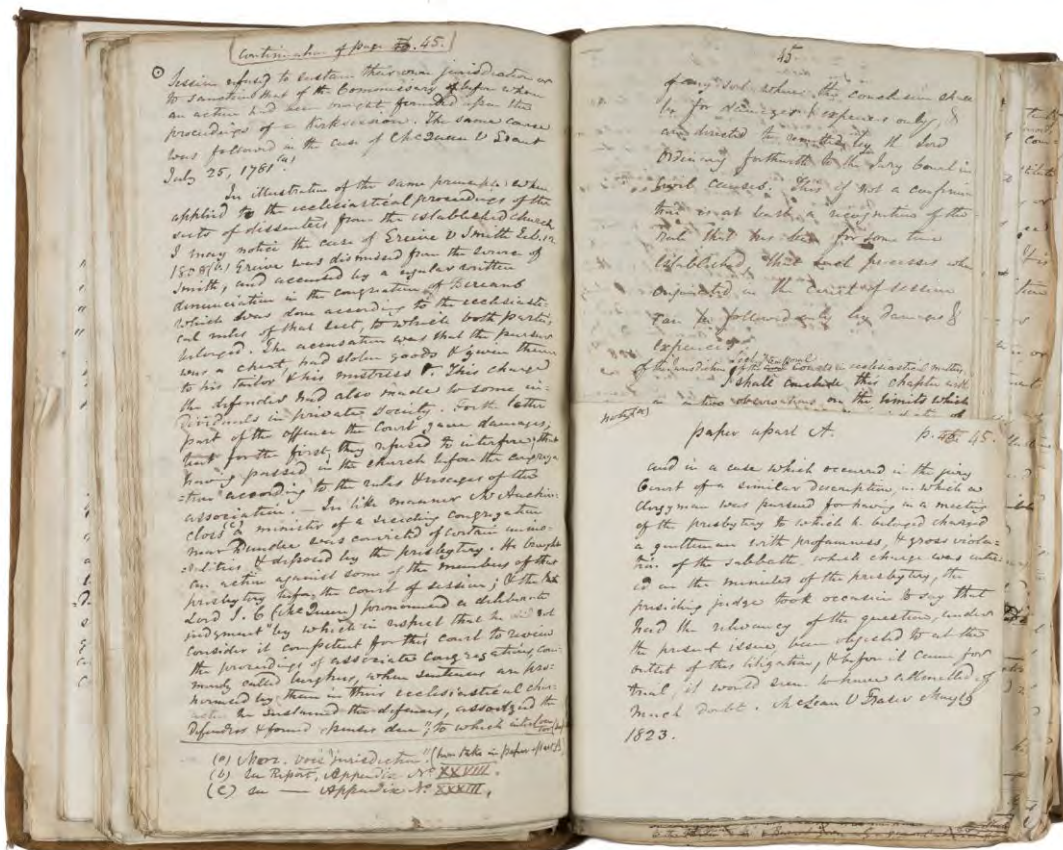 Continuation of page 45.
Session refused to sustain their own jurisdiction or
to sanction that of the Commissary before whom
an action had been brought founded upon the
proceedings of a Kirk session. The same course
was followed in the case of McQueen V Grant
July 25, 1781 (a)
In illustration of the same principle when
applied to the ecclesiastical proceedings of the
sects of dissenters from the established church
I may notice the case of Greive V Smith Feb. 12
1808 (b) Greive was dismissed from the service of
Smith, and accused by a regular written
denunciation in the congregation of Bereans
which was done according to the ecclesiasti-
cal rules of that sect, to which both parties
belonged. The accusation was that the pursuer
was a cheat, had stolen goods & given them
to his tailor & his mistress. This charge
the defender had also made to some in-
dividuals in private society. For the latter
part of the offence the Court gave damages,
but for the first, they refused to interfere, that
having passed in the church before the congrega
=tion according to the rules & usages of the
association. — In like manner Mr Auchin-
closs (c) a minister of a seceding congregation
near Dundee was convicted of certain immo-
-ralities & deposed by the presbytery. He brought
an action against some of the members of that
presbytery before the court of session; & the
Lord J. C (McQueen) pronounced a deliberate
judgment "by which in respect that he did not
consider it competent for this court to review
the proceedings of associate congregations, com-
monly called burghers, when sentences are pro-
nounced by them in their ecclesiastical cha-
racter he sustained the defences, assoilzied the
defenders & found expenses due"; to which interlocutor
(a) Morr. voce jurisdiction" (here take in paper apart A)
(b) See Report, Appendix No XXVIII.
(c) See — Appendix No XXXIII.
45
of any sort where the conclusion shall
be for damages & expenses only, &
are directed to be remitted by the Lord
Ordinary forthwith to the Jury Court in
Civil causes. This if not a confirma
tion is at least a recognition of the
rule that has been for some time
established, that such processes when
originated in the court of session
can be followed only by damages &
expences
of the jurisdiction of the Courts in ecclesiastical matters
I shall conclude this chapter with
a two observations on the limits which
note (a)
paper apart A. p. 45.
and in a case which occurred in the jury
Court of a similar description, in which a
clergyman was pursued for having in a meeting
of the presbytery to which he belonged charged
a gentleman with profaneness, & gross viola-
tion of the sabbath, which charge was enter-
ed in the minutes of the presbytery, the
presiding judge took occasion to say that
had the relevancy of the question, under
the present issue, been objected to at the
outset of this litigation, & before it came for
trial, it would seem to have admitted of
much doubt. McLean V Fraser May 19
1823.